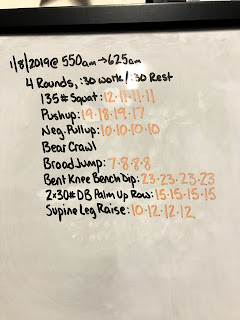 1/8/2019@ 550am→625am
4 Rounds, :30 work/:30 Rest
135# Squat: 12·11·11·11
Pushup: 19·18·19·17
Neg. Pullup: 10·10·10·10
Bear Crawl
Broad Jump: 7·8·8·8
Bent Knee Bench Dip: 23·23·23·23
2x30# DB Palm Up Row: 15·15·15·15
Supine Leg Raise: 10·12·12·12